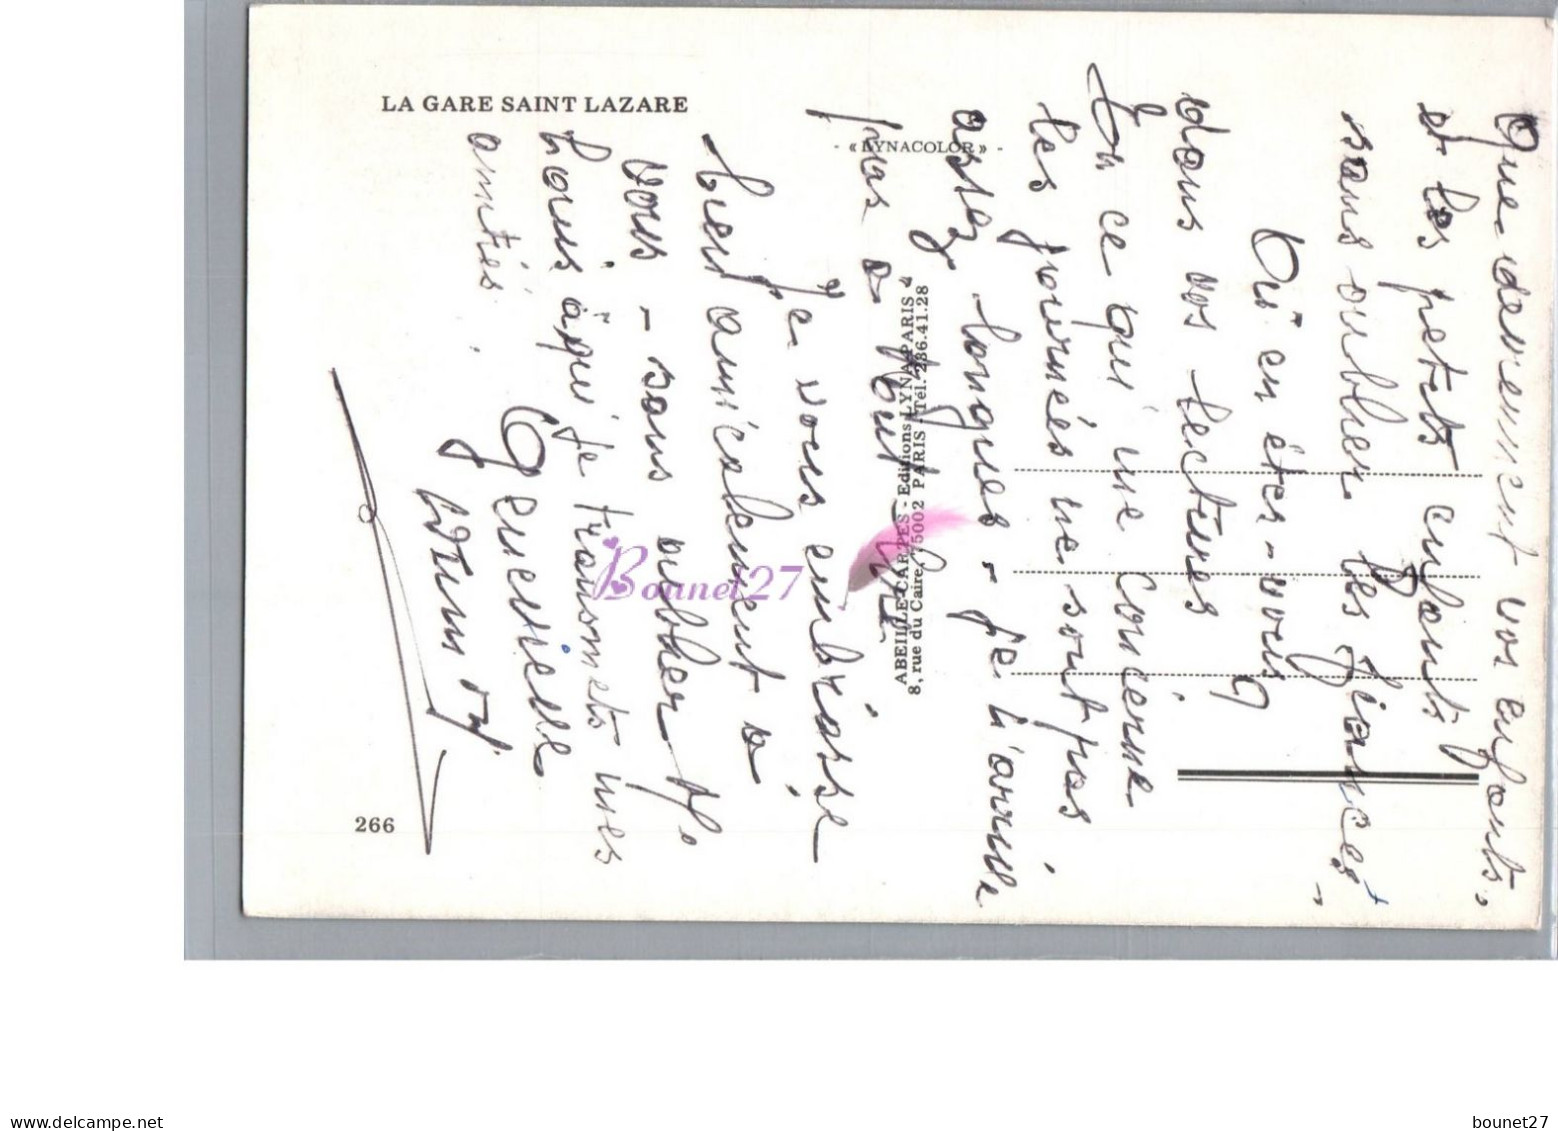 LA GARE SAINT LAZARE
- « LYNACOLOR » -
ABEILLE-CARTES - Editions « LYNA-PARIS »
8, rue du Caire, 75002 PARIS - Tél. 236.41.28
266
Que deviennent vos enfants,
et les petits enfants
sans oublier les fiancés
Où en êtes-vous
dans vos lectures ?
En ce qui me concerne
les journées ne sont pas
assez longues - je n'arrive
pas à tout lire
Je vous embrasse
bien amicalement à
vous - sans oublier Mr
Louis à qui je transmets mes
amitiés.
Geneviève
Bounet27
www.delcampe.net
bounet27